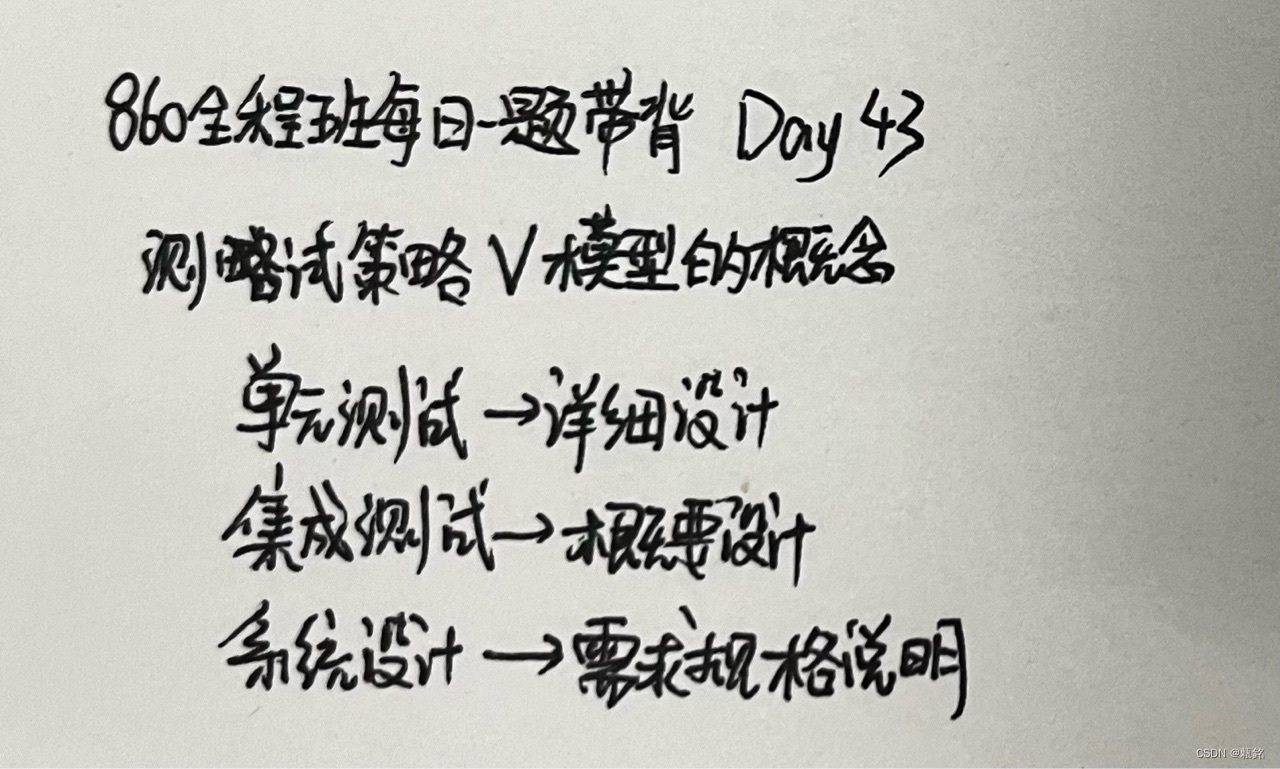 860全程班每日一题带背 Day 43
测略试策略 V模型的概念
单元测试→详细设计
集成测试→概要设计
系统设计→需求规格说明
CSDN @甄銘